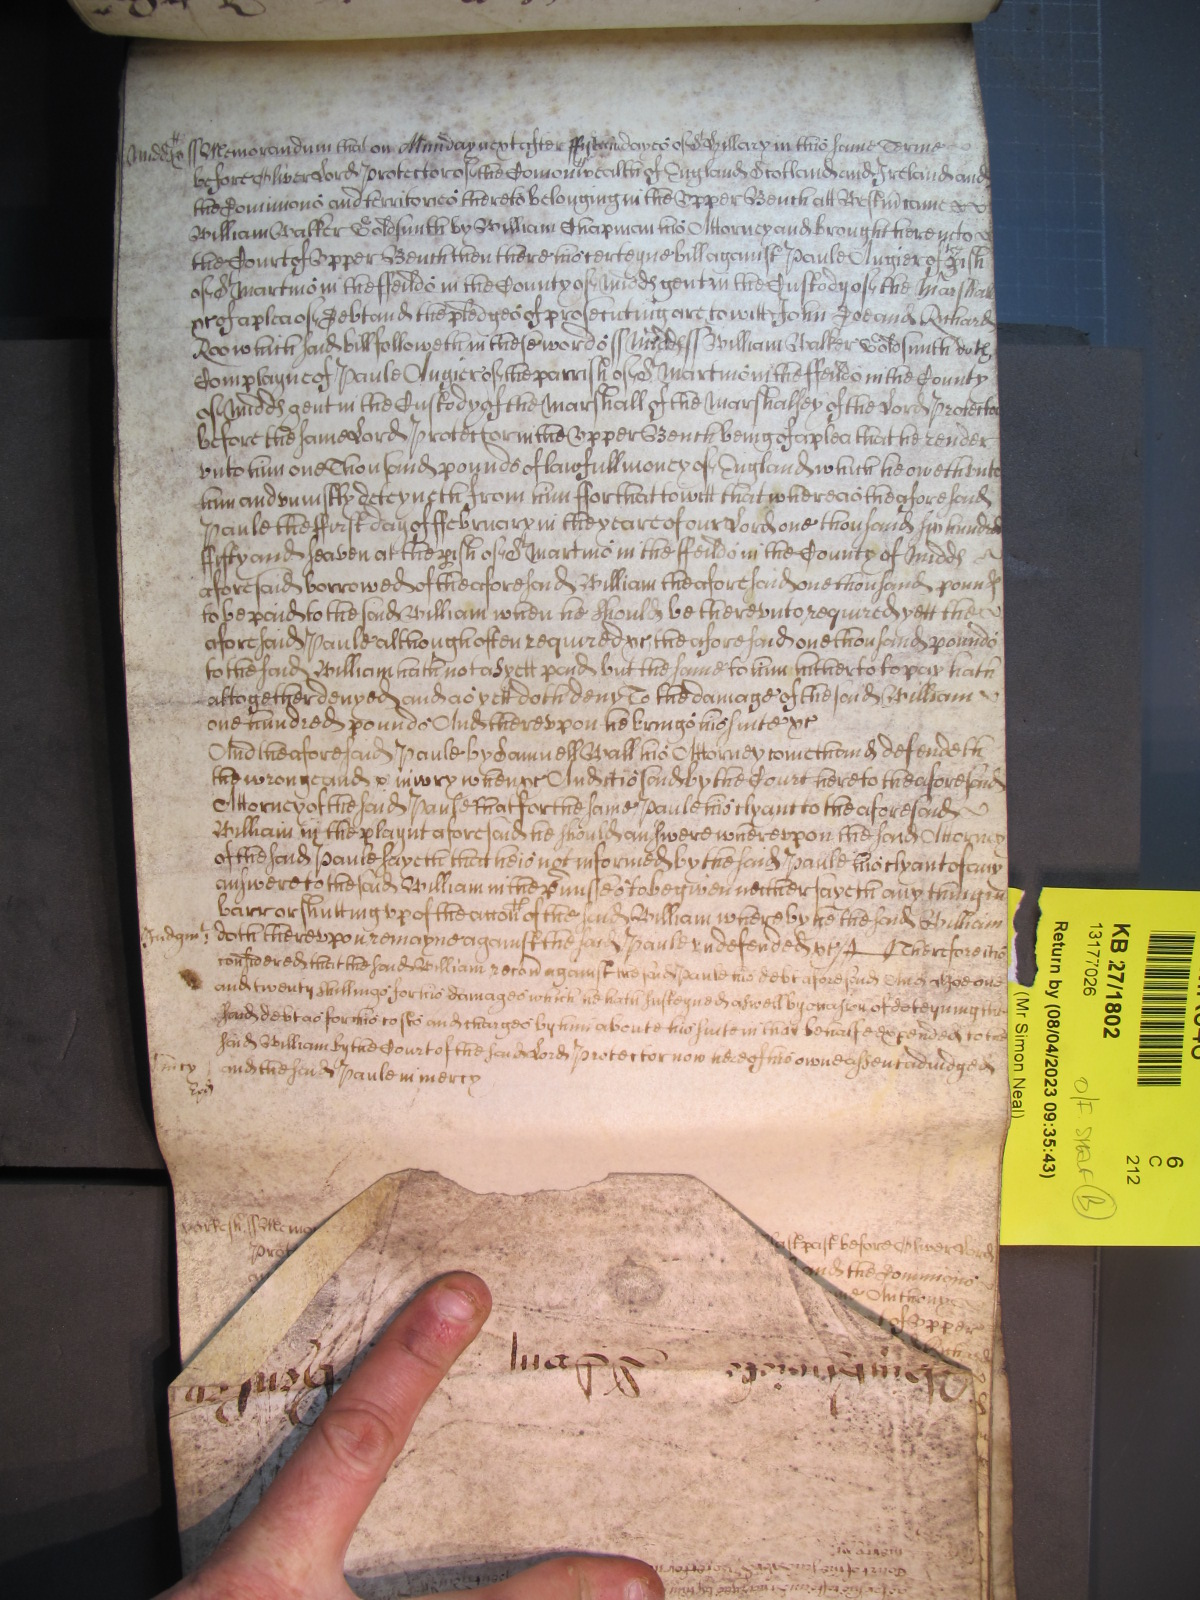 Midds ss Memorandum that on Munday next after fifteen dayes of St Hillary in this same Terme
before Oliver Lord Protector of the Comonwealth of England Scotland and Ireland and
the Dominions and territories thereto belonging in the Upper Bench att Westm came
William Walker Goldsmith by William Chapman his Attorney and brought here into
the Court of Upper Bench then there his certeyne bill against Paule Angier of the pish
of St Martins in the ffeilds in the County of Midds gent in the Custody of the Marshall
&c of a plea of Debt and the pledges of prosecuting are to witt John Doe and Richard
Roo which said bill followeth in these words ss Midds ss William Walker Goldsmith doth
Complayne of Paule Angier of the parrish of St Martins in the ffeilds in the County
of Midds gent in the Custody of the Marshall of the Marshalsey of the Lord Protector
before the same Lord Protector in the Upper Bench being of a plea that he render
unto him one Thousand pounds of lawfull money of England which he oweth unto
him and uniustly deteyneth from him ffor that to witt that whereas the aforesaid
Paule the ffirst day of ffebruary in the yeare of our Lord one thousand six hundred
ffifty and seaven at the pish of St Martins in the ffeilds in the County of Midds
aforesaid borrowed of the aforesaid William the aforesaid one thousand pounds
to be paid to the said William when he should be thereunto required yett the
aforesaid Paule although often required &c the aforesaid one thousand pounds
to the said William hath not as yett paid but the same to him hitherto to pay hath
altogether denyed and as yett doth deny To the damage of the said William
one hundred pounds And thereupon he brings his suite &c
And the aforesaid Paule by Samuell Wall his Attorney cometh and defendeth
the wronge and iniury when &c And it is said by the Court here to the aforesaid
Attorney of the said Paule that for the same Paule his clyant to the aforesaid
William in the playnt aforesaid he should answere whereupon the said Attorney
of the said Paule sayeth that he is not informed by the said Paule his clyant of any
answere to the said William in the pmisses to be given neither sayeth any thing in
barr or shutting up of the accon of the said William whereby he the said William
Judgmt doth thereupon remayne against the said Paule undefended &c Therefore it is
considered that the said William recover against the said Paule his debt aforesaid And alsoe one
and twenty shillings for his damages which he hath susteyned aswell by occasion of deteyning the
said debt as for his costs and charges by him aboute his suite in that behalfe expended to the
said William by the Court of the said Lord Protector now here of his owne assent adiudged
mcy and the said Paule in mercy
Yorksh ss Memo last past before Oliver Lord
Prot and the Dominions
Anthony
of Upper
KB 27/1802
13177026
Return by (08/04/2023 09:35:43)
(Mr Simon Neal)
6
C
212